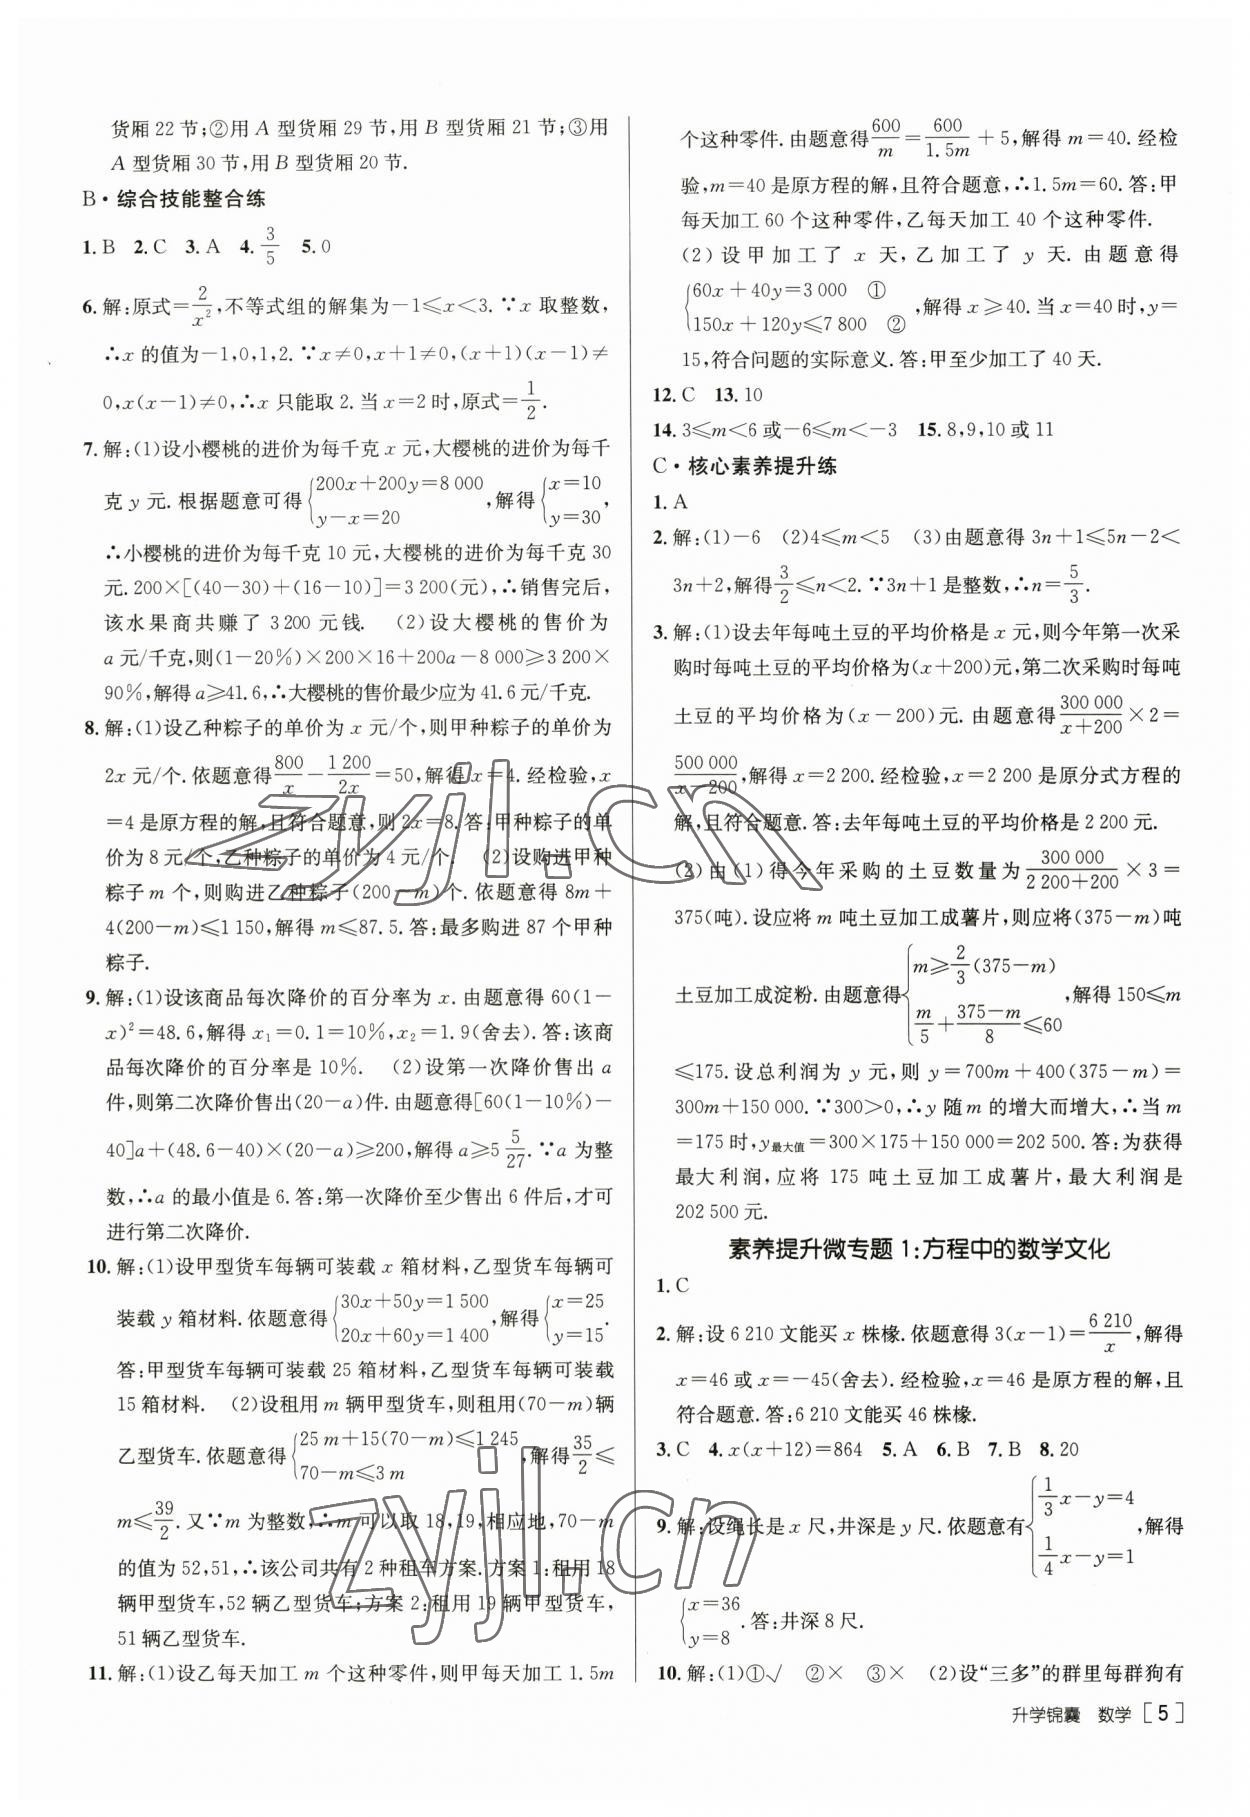 货厢22节;②用A型货厢29节,用B型货厢21节;③用
A型货厢30节,用B型货厢20节.
B·综合技能整合练
1.B 2.C 3.A 4.3/5 5.0
6.解:原式=2/x²,不等式组的解集为-1≤x<3.∵x取整数,
∴x的值为-1,0,1,2.∵x≠0,x+1≠0,(x+1)(x-1)≠
0,x(x-1)≠0,∴x只能取2.当x=2时,原式=1/2.
7.解:(1)设小樱桃的进价为每千克x元,大樱桃的进价为每千
克y元.根据题意可得{200x+200y=8 000 y-x=20,解得{x=10 y=30,
∴小樱桃的进价为每千克10元,大樱桃的进价为每千克30
元.200×[(40-30)+(16-10)]=3 200(元),∴销售完后,
该水果商共赚了3 200元钱. (2)设大樱桃的售价为
a元/千克,则(1-20%)×200×16+200a-8 000≥3 200×
90%,解得a≥41.6,∴大樱桃的售价最少应为41.6元/千克.
8.解:(1)设乙种粽子的单价为x元/个,则甲种粽子的单价为
2x元/个.依题意得800/x-1 200/2x=50,解得x=4.经检验,x
=4是原方程的解,且符合题意,则2x=8.答:甲种粽子的单
价为8元/个,乙种粽子的单价为4元/个. (2)设购进甲种
粽子m个,则购进乙种粽子(200-m)个.依题意得8m+
4(200-m)≤1 150,解得m≤87.5.答:最多购进87个甲种
粽子.
9.解:(1)设该商品每次降价的百分率为x.由题意得60(1-
x)²=48.6,解得x₁=0.1=10%,x₂=1.9(舍去).答:该商
品每次降价的百分率是10%. (2)设第一次降价售出a
件,则第二次降价售出(20-a)件.由题意得[60(1-10%)-
40]a+(48.6-40)×(20-a)≥200,解得a≥5 5/27.∵a为整
数,∴a的最小值是6.答:第一次降价至少售出6件后,才可
进行第二次降价.
10.解:(1)设甲型货车每辆可装载x箱材料,乙型货车每辆可
装载y箱材料.依题意得{30x+50y=1 500 20x+60y=1 400,解得{x=25 y=15.
答:甲型货车每辆可装载25箱材料,乙型货车每辆可装载
15箱材料. (2)设租用m辆甲型货车,则租用(70-m)辆
乙型货车.依题意得{25m+15(70-m)≤1 245 70-m≤3m,解得35/2≤
m≤39/2.又∵m为整数,∴m可以取18,19,相应地,70-m
的值为52,51,∴该公司共有2种租车方案.方案1:租用18
辆甲型货车,52辆乙型货车;方案2:租用19辆甲型货车,
51辆乙型货车.
11.解:(1)设乙每天加工m个这种零件,则甲每天加工1.5m
个这种零件.由题意得600/m=600/1.5m+5,解得m=40.经检
验,m=40是原方程的解,且符合题意,∴1.5m=60.答:甲
每天加工60个这种零件,乙每天加工40个这种零件.
(2)设甲加工了x天,乙加工了y天.由题意得
{60x+40y=3 000 ① 150x+120y≤7 800 ②,解得x≥40.当x=40时,y=
15,符合问题的实际意义.答:甲至少加工了40天.
12.C 13.10
14.3≤m<6或-6≤m<-3 15.8,9,10或11
C·核心素养提升练
1.A
2.解:(1)-6 (2)4≤m<5 (3)由题意得3n+1≤5n-2<
3n+2,解得3/2≤n<2.∵3n+1是整数,∴n=5/3.
3.解:(1)设去年每吨土豆的平均价格是x元,则今年第一次采
购时每吨土豆的平均价格为(x+200)元,第二次采购时每吨
土豆的平均价格为(x-200)元.由题意得300 000/x+200×2=
500 000/x-200,解得x=2 200.经检验,x=2 200是原分式方程的
解,且符合题意.答:去年每吨土豆的平均价格是2 200元.
(2)由(1)得今年采购的土豆数量为300 000/2 200+200×3=
375(吨).设应将m吨土豆加工成薯片,则应将(375-m)吨
土豆加工成淀粉.由题意得{m≥2/3(375-m) m/5+375-m/8≤60,解得150≤m
≤175.设总利润为y元,则y=700m+400(375-m)=
300m+150 000.∵300>0,∴y随m的增大而增大,∴当m
=175时,y最大值=300×175+150 000=202 500.答:为获得
最大利润,应将175吨土豆加工成薯片,最大利润是
202 500元.
素养提升微专题1:方程中的数学文化
1.C
2.解:设6 210文能买x株椽.依题意得3(x-1)=6 210/x,解得
x=46或x=-45(舍去).经检验,x=46是原方程的解,且
符合题意.答:6 210文能买46株椽.
3.C 4.x(x+12)=864 5.A 6.B 7.B 8.20
9.解:设绳长是x尺,井深是y尺.依题意有{1/3x-y=4 1/4x-y=1,解得
{x=36 y=8.答:井深8尺.
10.解:(1)①√ ②× ③× (2)设“三多”的群里每群狗有
升学锦囊 数学[5]
zyjl.cn
zyjl.cn